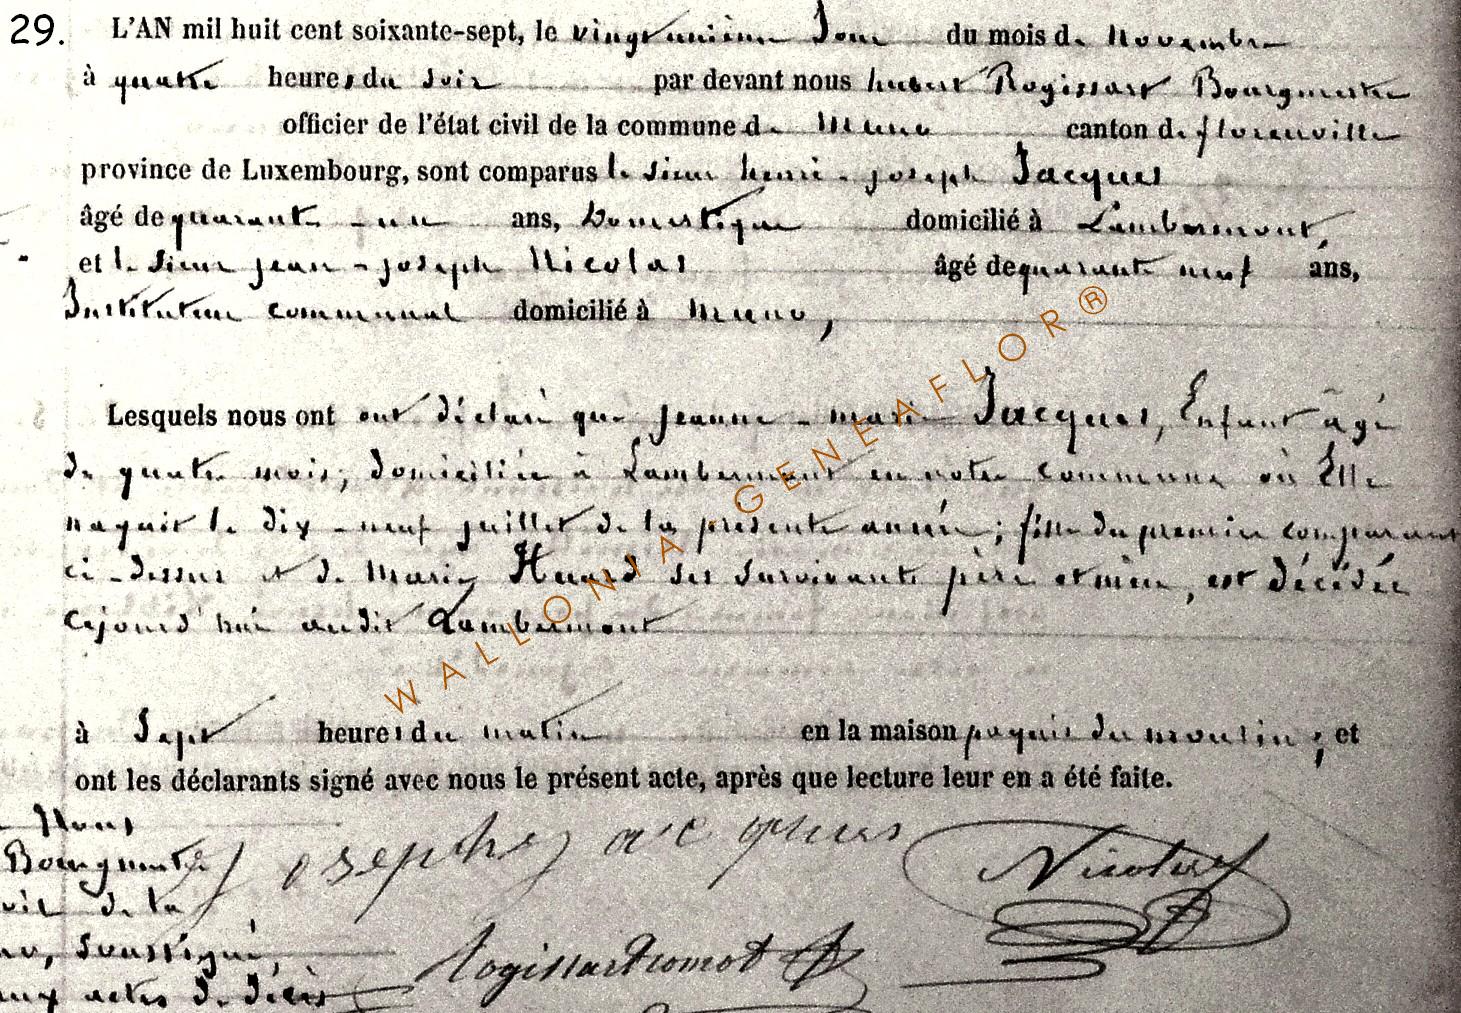 29. L'AN mil huit cent soixante-sept, le vingt unième Jour du mois de Novembre
à quatre heures du soir par devant nous hubert Rogissart Bourgmestre
officier de l'état civil de la commune de Muno canton de florenville
province de Luxembourg, sont comparus le sieur henri-joseph Jacques
âgé de quarante-un ans, Domestique domicilié à Lambermont,
et le sieur jean-joseph Nicolas âgé de quarante neuf ans,
Instituteur communal domicilié à Muno,
Lesquels nous ont ont déclaré que jeanne-marie Jacques, Enfant âgé
de quatre mois, domiciliée à Lambermont en notre commune où Elle
naquit le dix-neuf juillet de la présente année; fille du premier comparant
ci-dessus et de Marie Huard ses survivants père et mère, est décédée
cejourd'hui audit Lambermont
à Sept heures du matin en la maison paquis du moulin; et
ont les déclarants signé avec nous le présent acte, après que lecture leur en a été faite.
Nous
Bourgmestre josephe jacques Nicolas
de la
soussigné,
Rogissart
aux actes de décès
WALLONIA GENEAFLOR®